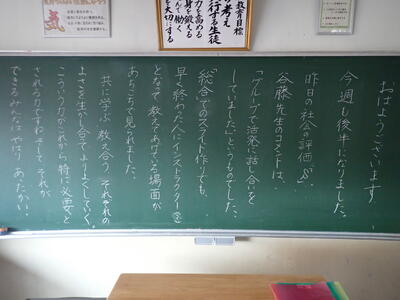 教育目標
考え
行する生徒
力を高める
身を鍛える
んで働く
を大切にする
気
おはようございます
今週も後半になりました。
昨日の社会評価「S」。
谷藤先生のコメントは、
「グループで活発に話し合いを
していました」というものでした。
総合でのスライド作りでも、
早く終わった人がインストラクター
となって教えてあげている場面が
あちこちで見られました。
共に学ぶ 教え合う それぞれの
よさを生かし合ってよりよくしていく。
こういう力がこれから特に必要と
される力ですね。そしてそれが
できるみんなはやはりあたたかい!